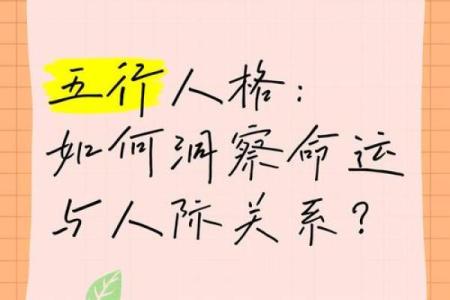 五行人格:
如何洞察命运
与人际关系?